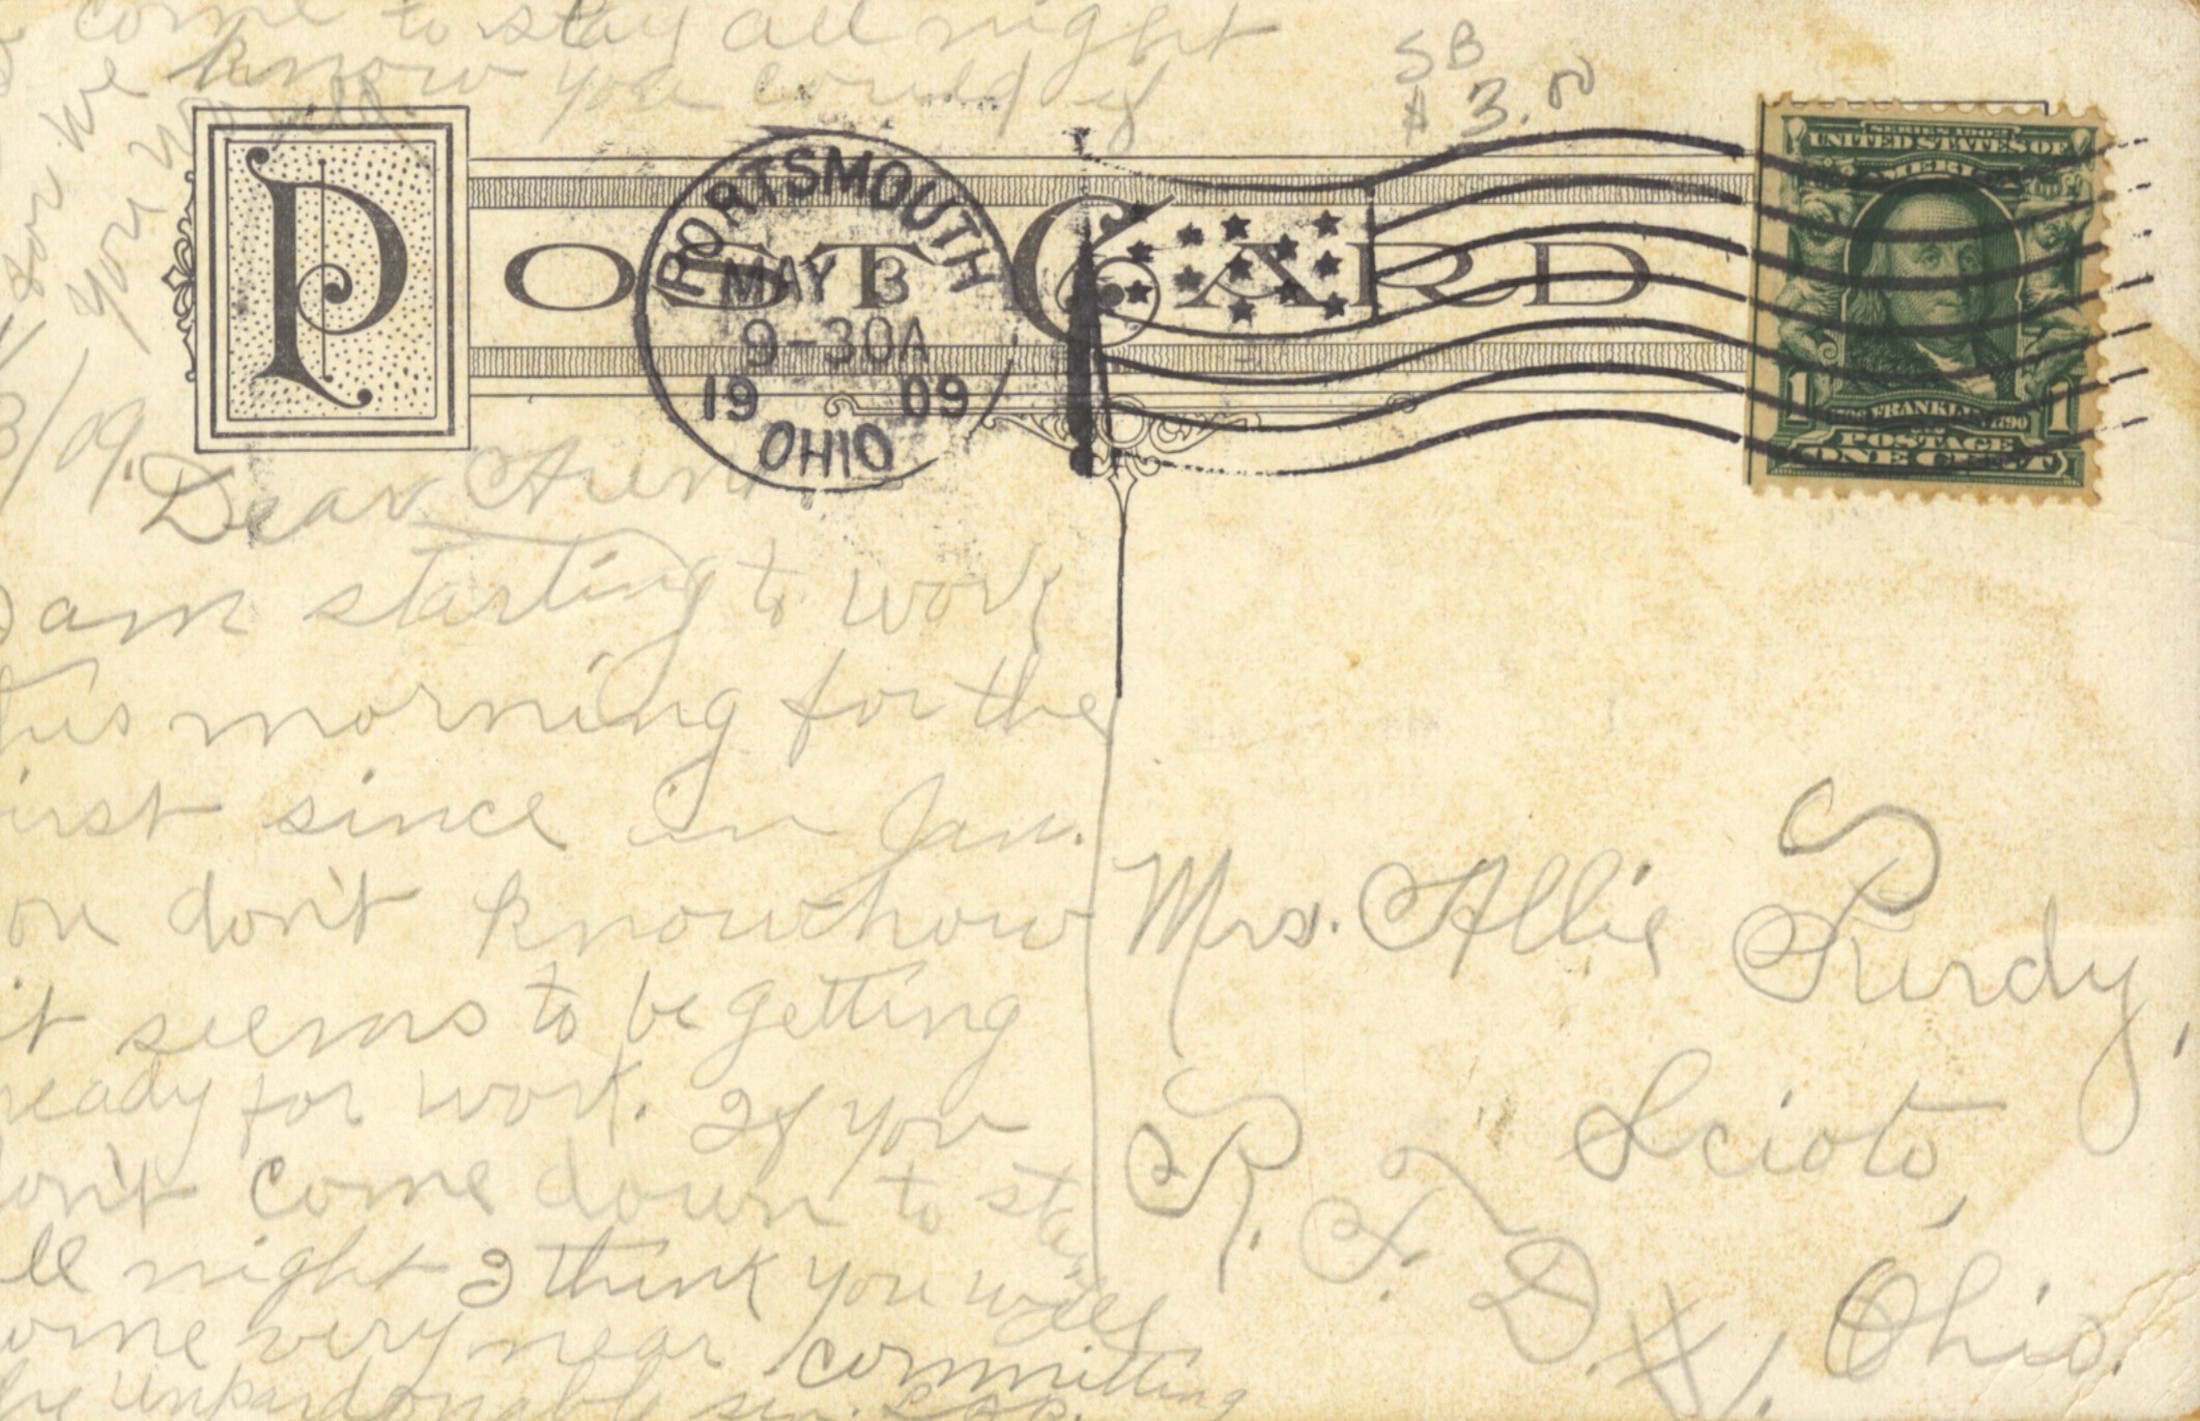 come to stay all night
for we know you could if
you would
SB
$3.00
POST CARD
PORTSMOUTH
MAY 3
9-30A
1909
OHIO
SERIES 1902
UNITED STATES OF
AMERICA
FRANKLIN
1790
1 1
POSTAGE
ONE CENT
3/09.
Dear Aunt
am starting to work
this morning for the
first since in Jan.
you don't know how
it seems to be getting
ready for work. If you
don't come down to stay
all night I think you will
come very near committing
the unpardonable sin.
Mrs. Allie Purdy,
Scioto,
R.F.D. #1. Ohio.